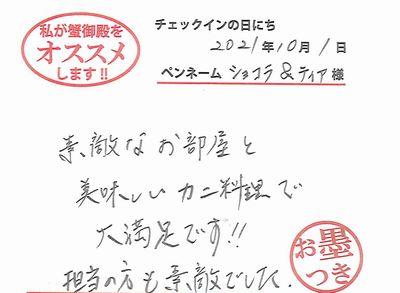 私が蟹御殿を
オススメ
します!!
チェックインの日にち
2021年10月1日
ペンネーム ショコラ&ティア様
素敵なお部屋と
美味しいカニ料理で
大満足です!!
担当の方も素敵でした.
お墨
つき